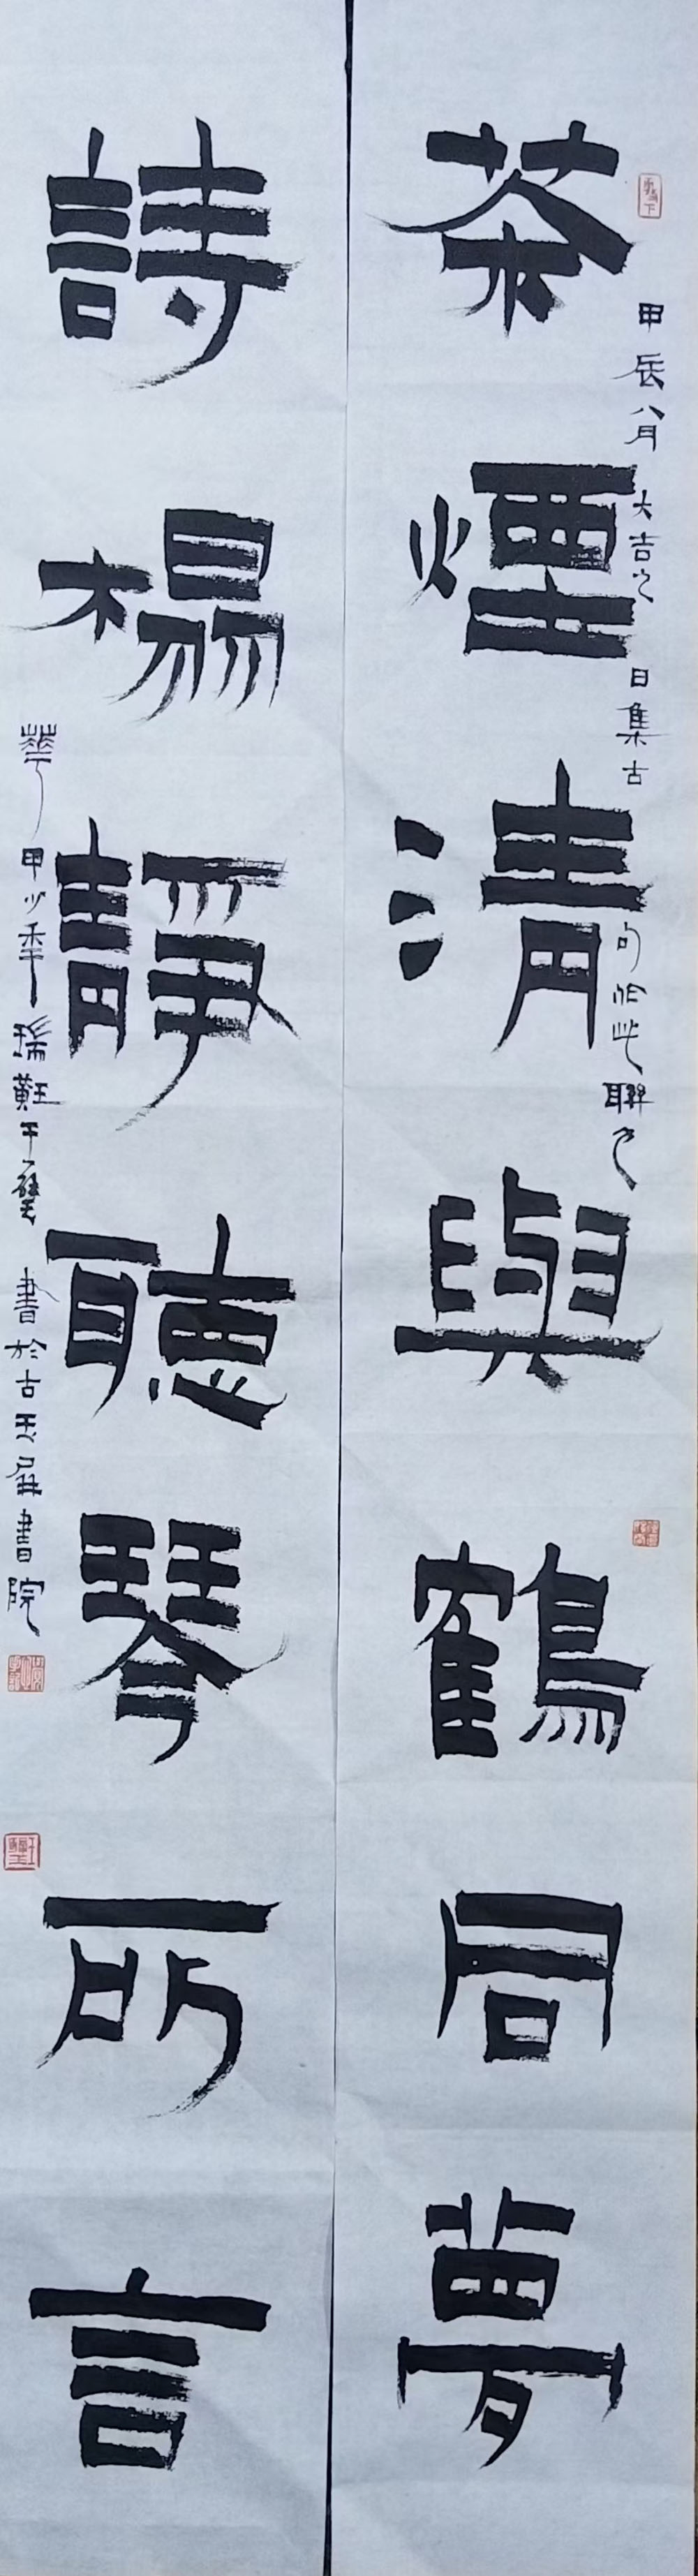 甲辰八月大吉之日集古句作此聯也
茶煙清與鶴同夢
詩榻靜聽琴所言
華甲少年瑞 書於古玉屏書院